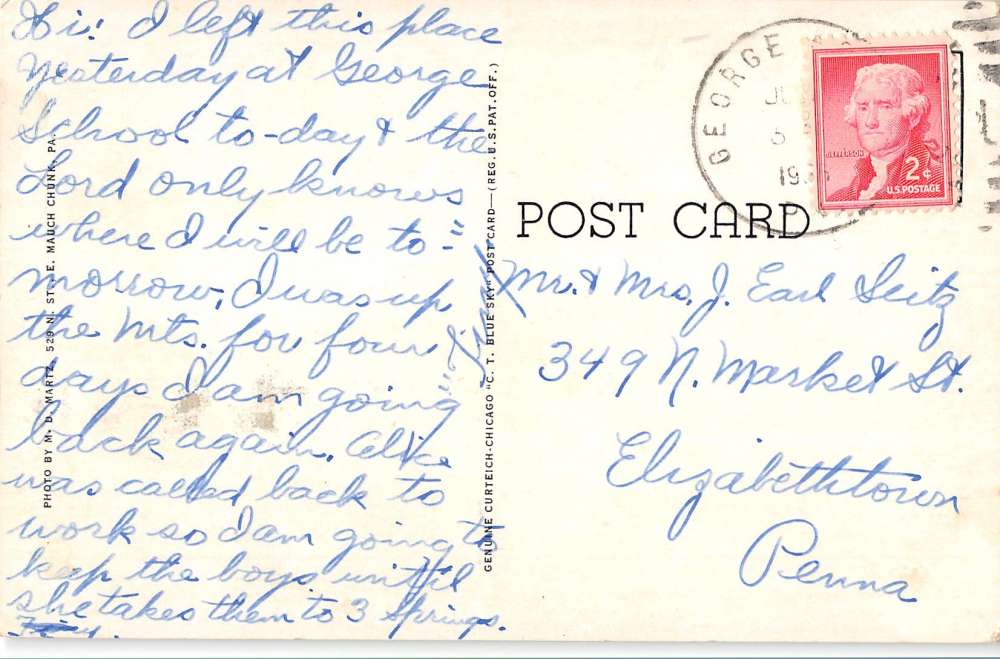 Hi! I left this place
Yesterday at George
School to-day & the
Lord only knows
where I will be to-
morrow, I was up
the Mts. for four
days I am going
back again. Alice
was called back to
work so I am going to
keep the boys until
she takes them to 3 Springs.
PHOTO BY M. D. MARTZ, 529 N. ST. E. MAUCH CHUNK, PA.
GENUINE CURTEICH-CHICAGO "C. T. BLUE SKY" POST CARD—(REG. U.S. PAT. OFF.)
POST CARD
GEORGE
19
JEFFERSON
2¢
U.S. POSTAGE
Mr. & Mrs. J. Earl Seitz
349 N. Market St.
Elizabethtown
Penna